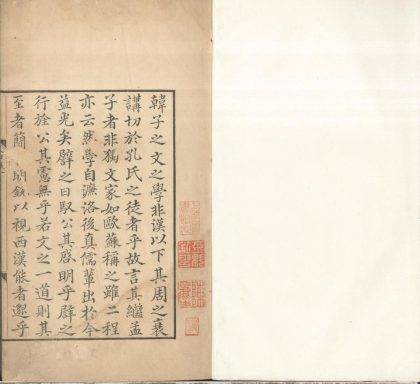 韓子之文之學非漢以下其周之衰
講切於孔氏之徒者乎故言其繼孟
子者非獨文家如歐蘇稱之雖二程
亦云然學自濂洛後真儒輩出於今
益光矣譬之日馭公其啓明乎辟之
行旅公其寘無乎若文之一道則其
至者簡 明鋭以視西漢能者邈乎